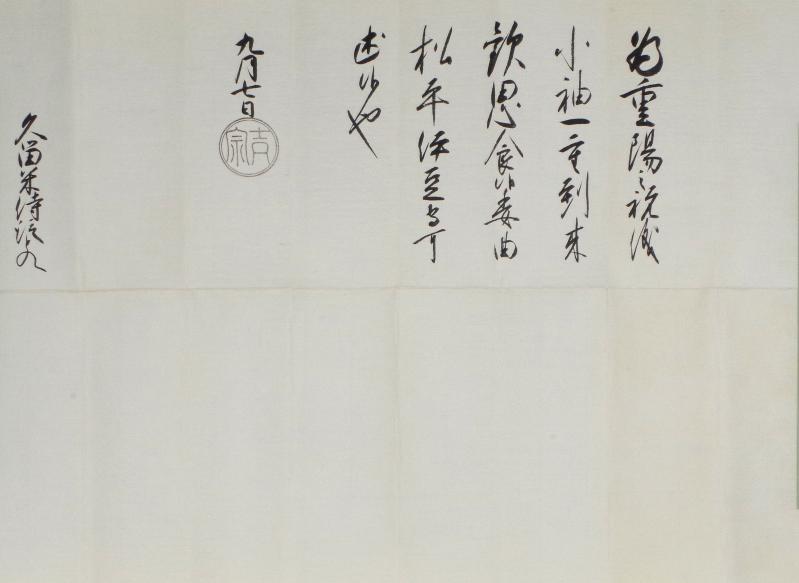 為重陽之祝儀
小袖一重到来
歓思食候委曲
松平伊豆守可
述候也
九月七日
吉宗
久留米侍従とのへ